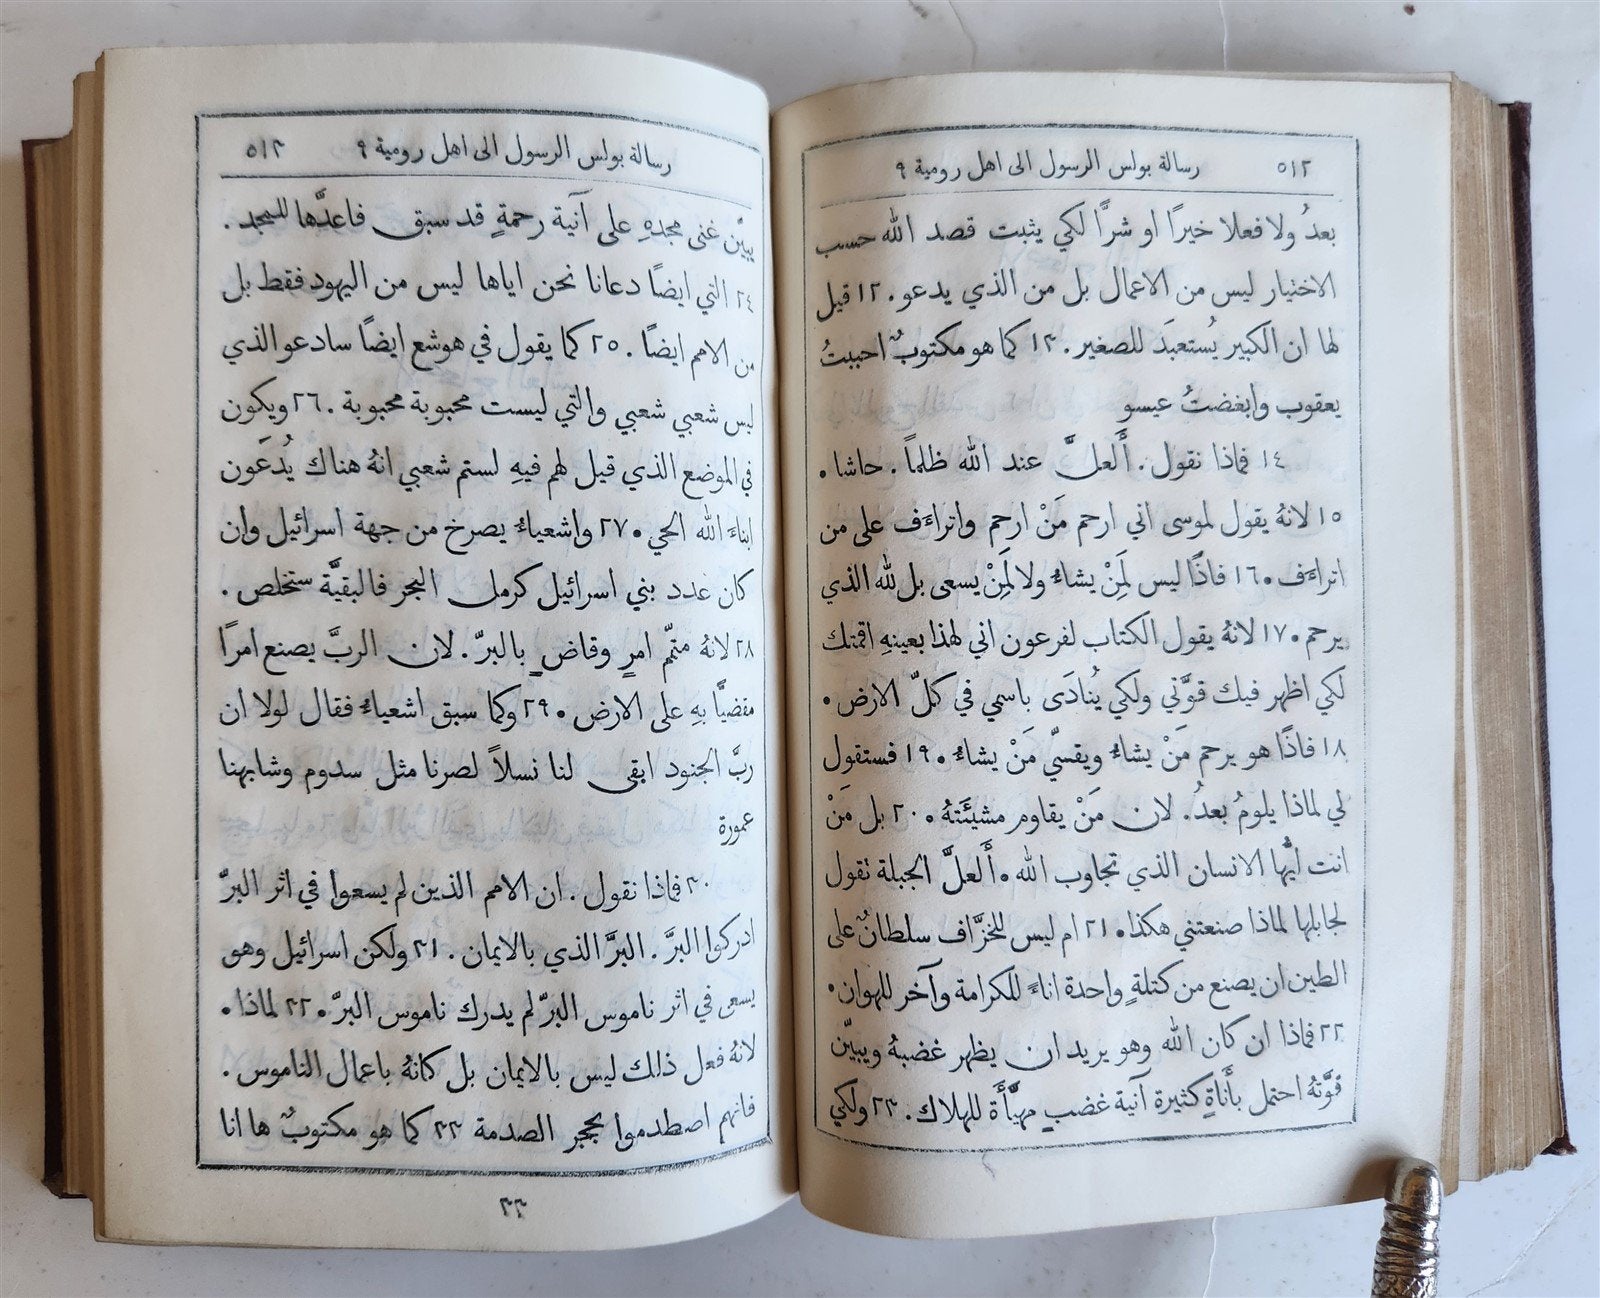 ٥١٢ رسالة بولس الرسول الى اهل رومية ٩
بعدُ ولا فعلا خيرًا او شرًّا لكي يثبت قصد الله حسب
الاختيار ليس من الاعمال بل من الذي يدعو. ١٢ قيل
لها ان الكبير يُستعبَد للصغير. ١٣ كما هو مكتوبٌ احببتُ
يعقوب وابغضتُ عيسو
١٤ فماذا نقول. أَلعلَّ عند الله ظلماً. حاشا.
١٥ لانهُ يقول لموسى اني ارحم مَنْ ارحم واتراءَف على من
اتراءَف. ١٦ فاذًا ليس لِمَنْ يشاءُ ولا لِمَنْ يسعى بل لله الذي
يرحم. ١٧ لانهُ يقول الكتاب لفرعون اني لهذا بعينهِ اقمتك
لكي اظهر فيك قوَّتي ولكي يُنادَى باسمي في كلّ الارض.
١٨ فاذًا هو يرحم مَنْ يشاءُ ويقسّي مَنْ يشاءُ. ١٩ فستقول
لي لماذا يلومُ بعدُ. لان مَنْ يقاوم مشيئَتهُ. ٢٠ بل مَنْ
انت ايُّها الانسان الذي تجاوب الله. أَلعلَّ الجبلة تقول
لجابلها لماذا صنعتني هكذا. ٢١ ام ليس للخزَّاف سلطانٌ على
الطين ان يصنع من كتلةٍ واحدة اناءً للكرامة وآخر للهوان.
٢٢ فماذا ان كان الله وهو يريد ان يظهر غضبهُ ويبيّن
قوَّتهُ احتمل بأَناةٍ كثيرة آنية غضبٍ مهيَّأَة للهلاك. ٢٣ ولكي
رسالة بولس الرسول الى اهل رومية ٩ ٥١٣
يبيّن غنى مجدهِ على آنية رحمةٍ قد سبق فاعدَّها للمجد.
٢٤ التي ايضًا دعانا نحن اياها ليس من اليهود فقط بل
من الامم ايضًا. ٢٥ كما يقول في هوشع ايضًا سادعو الذي
ليس شعبي شعبي والتي ليست محبوبة محبوبة. ٢٦ ويكون
في الموضع الذي قيل لهم فيهِ لستم شعبي انهُ هناك يُدعَون
ابناءَ الله الحي. ٢٧ واشعياءُ يصرخ من جهة اسرائيل وان
كان عدد بني اسرائيل كرمل البحر فالبقيَّة ستخلص.
٢٨ لانهُ متمّم امرٍ وقاضٍ بالبرّ. لان الربَّ يصنع امرًا
مقضيًّا بهِ على الارض. ٢٩ وكما سبق اشعياءُ فقال لولا ان
ربَّ الجنود ابقى لنا نسلاً لصرنا مثل سدوم وشابهنا
عمورة
٣٠ فماذا نقول. ان الامم الذين لم يسعوا في اثر البرّ
ادركوا البرَّ. البرَّ الذي بالايمان. ٣١ ولكن اسرائيل وهو
يسعى في اثر ناموس البرّ لم يدرك ناموس البرّ. ٣٢ لماذا.
لانهُ فعل ذلك ليس بالايمان بل كانهُ باعمال الناموس.
فانهم اصطدموا بحجر الصدمة ٣٣ كما هو مكتوبٌ ها انا
٣٣